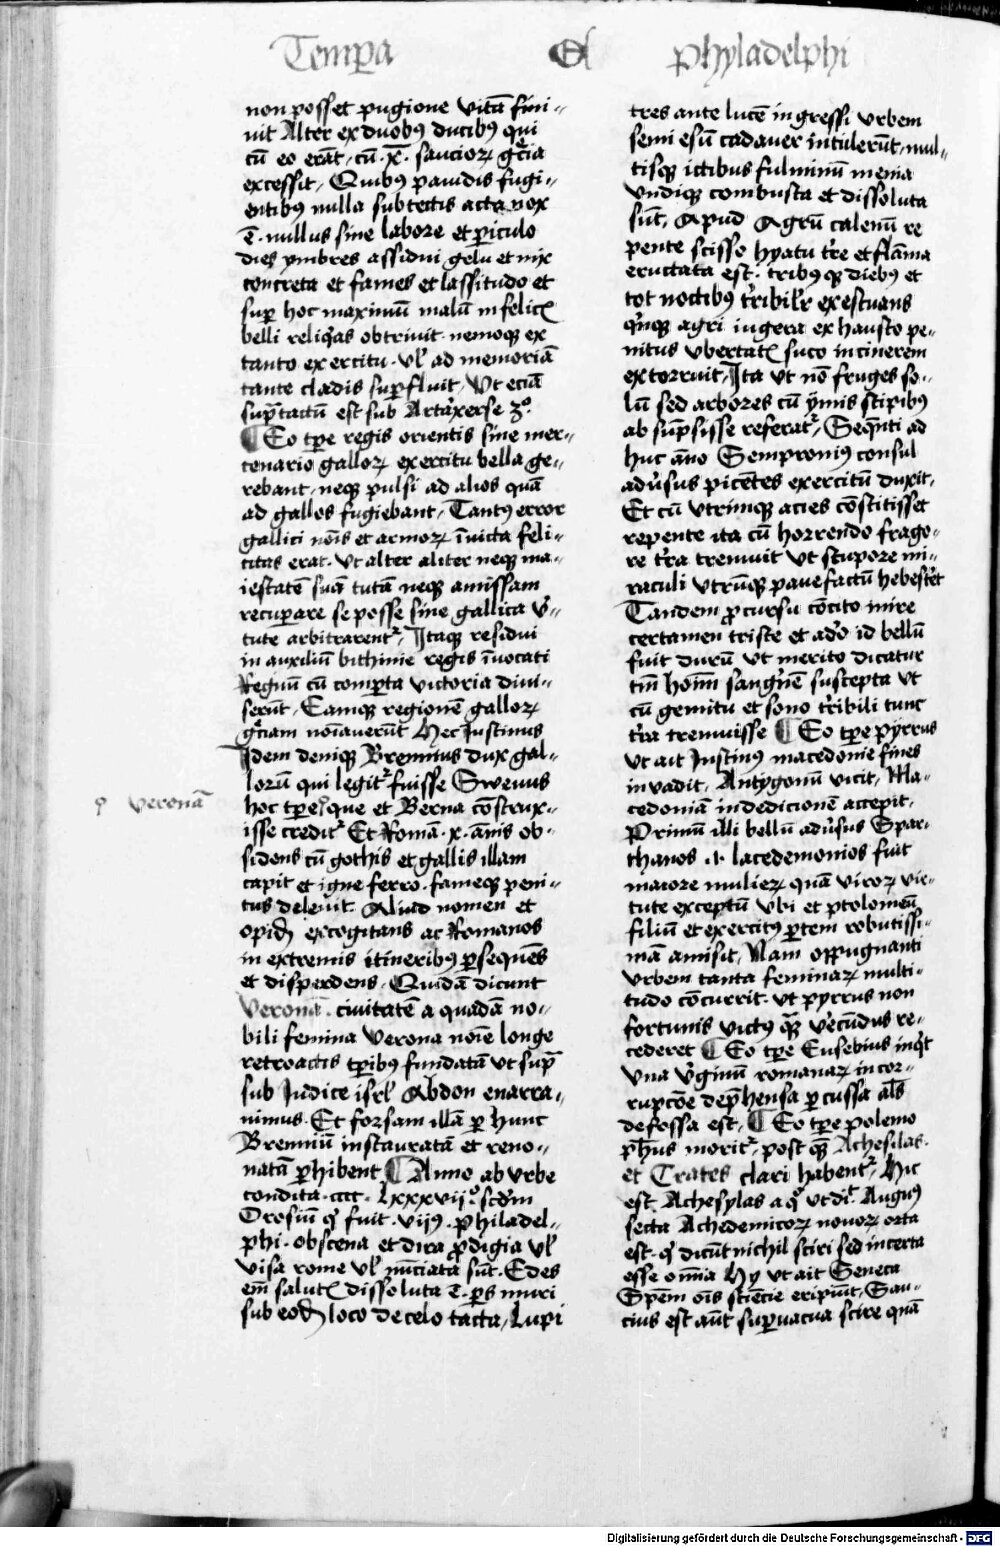 Tempa Et Phyladelphi
non posset pugione vitā fini-
uit Alter ex duobꝰ ducibꝰ qui
cū eo erāt, cū .x̄. saucioꝝ g̃cia
excessit, Quibꝰ pauidis fugi-
entibꝰ nulla sub tectis acta nox
ē. nullus sine labore et ꝑiculo
dies ymbres assidui gelu et nix
concreta et fames et lassitudo et
suꝑ hoc maximū malū infelicꝭ
belli reliq̇as obtriuit. nemoqꝫ ex
tanto exercitu. vl' ad memoriā
tante cladis suꝑfluit, Ut eciā
sup̄tactū est sub Artaxerse 3°.
¶ Eo tꝑe regis orientis sine mer-
cenario galloꝝ exercitu bella ge-
rebant, neqꝫ pulsi ad alios quā
ad gallos fugiebant, Tantꝰ error
gallici noīs et armoꝝ īuicta feli-
citas erat. vt alter aliter neqꝫ ma-
iestatē suā tutā neqꝫ amissam
recuꝑare se posse sine gallica v̓-
tute arbitrarentᷣ, Itaqꝫ residui
in auxiliū bithinie regis īuocati
Regnū cū comꝑta victoria diui-
serūt, Eamqꝫ regionē galloꝝ
g̓ciam noīauerūt Hec Justinus
Idem deniqꝫ Brennius dux gal-
lorū qui legitᷣ fuisse Sweuus
hoc tꝑe
que et Berna cōstrux-
isse creditᷣ Et Romā .x. ānis ob-
sidens cū gothis et gallis illam
capit et igne ferro. fameqꝫ peni-
tus deleuit Aliud nomen et
opid̄ excogitans ac Romanos
in extremis itineribꝰ ꝑsequēs
et disperdens. Quidā dicunt
Veronā. ciuitatē a quadā no-
bili femina Verona noīe longe
retroactis tꝑibꝰ fundatā vt sup̄
sub Judice isrl' Abdon enarra-
uimus. Et forsam illā ꝑ hunc
Brenniū instauratā et reno-
natā ꝑhibent ¶ Anno ab vrbe
condita .cccc. Lxxxvij°. scd̄m
Orosiū q̄ fuit .vijꝰ. philadel-
phi. obscena et dira ꝓdigia vl'
visa rome vl' nūciata sūt. Edes
em̄ salutꝭ dissoluta ē. ꝑs muri
sub eod̄ loco de celo tacta, Lupi
ꝑ veronā
tres ante lucē ingressi vrbem
semi esū cadauer intulerūt, mul-
tisqꝫ ictibus fulminū menia
vndiqꝫ combusta et dissoluta
sūt, Apud Agrū calenū re
pente scisso hyatu tre et flāma
eructata est. tribꝰqꝫ diebꝰ et
tot noctibꝰ t̓ribil'r exestuans
q̇nqꝫ agri iugera exhausto pe-
nitus vbertatꝭ suco in cinerem
extorruit, Ita vt nō fruges so-
lū sed arbores cū ymis stipibꝰ
absūpsisse referatᷣ, Seq̄nti ad
huc āno Semproniꝰ consul
adūsus picētes exercitū duxit,
Et cū vtrimqꝫ acies cōstitisset
repente ita cū horrendo frago-
re t̓ra tremuit vt stupore mi-
raculi vtrūqꝫ pauefactū hebes̄et
Tandem ꝓcursu cōcito mire
certamen triste et ad̓o id bellū
fuit durū vt merito dicatur
tm̄ hoīm sangnē suscepta vt
cū gemitu et sono t̓ribili tunc
t̓ra tremuisse ¶ Eo tꝑe pyrrus
vt ait Justinꝰ macedonie fines
inuadit, Antygonū vicit, Ma-
cedoniam in dedicionē accepit,
Primū illi bellū adūsus Spar-
thanos .i. lacedemonios fuit
maiore mulieꝝ quā viroꝝ vir-
tute exceptū vbi et ptolomeū
filiū et exercitꝰ ꝑtem robutissi-
mā amisit, Nam oppugnanti
vrbem tanta feminaꝝ multi-
tudo cōcurrit. vt pyrrus non
fortunis victꝰ q̄ꝫ v̓ecūdus re-
cederet ¶ Eo tꝑe Eusebius inq̇t
vna v̓ginū romanaꝝ in cor-
rupcōe dep̄hensa ꝑcussa als̄
defossa est, ¶ Eo tꝑe polemo
pħus moritᷣ, post quē Achesilas.
et Crates clari habentᷣ, Hic
est Achesylas a q° vt dit̄ Augꝰ
secta Achedemicoꝝ nouoꝝ orta
est. q̄ dicūt nichil sciri sed incerta
esse om̄ia Hy vt ait Seneca
Spēm oīs sciēcie eripiūt, Sau-
cius est aūt suꝑuacua scire quā
Digitalisierung gefördert durch die Deutsche Forschungsgemeinschaft - DFG